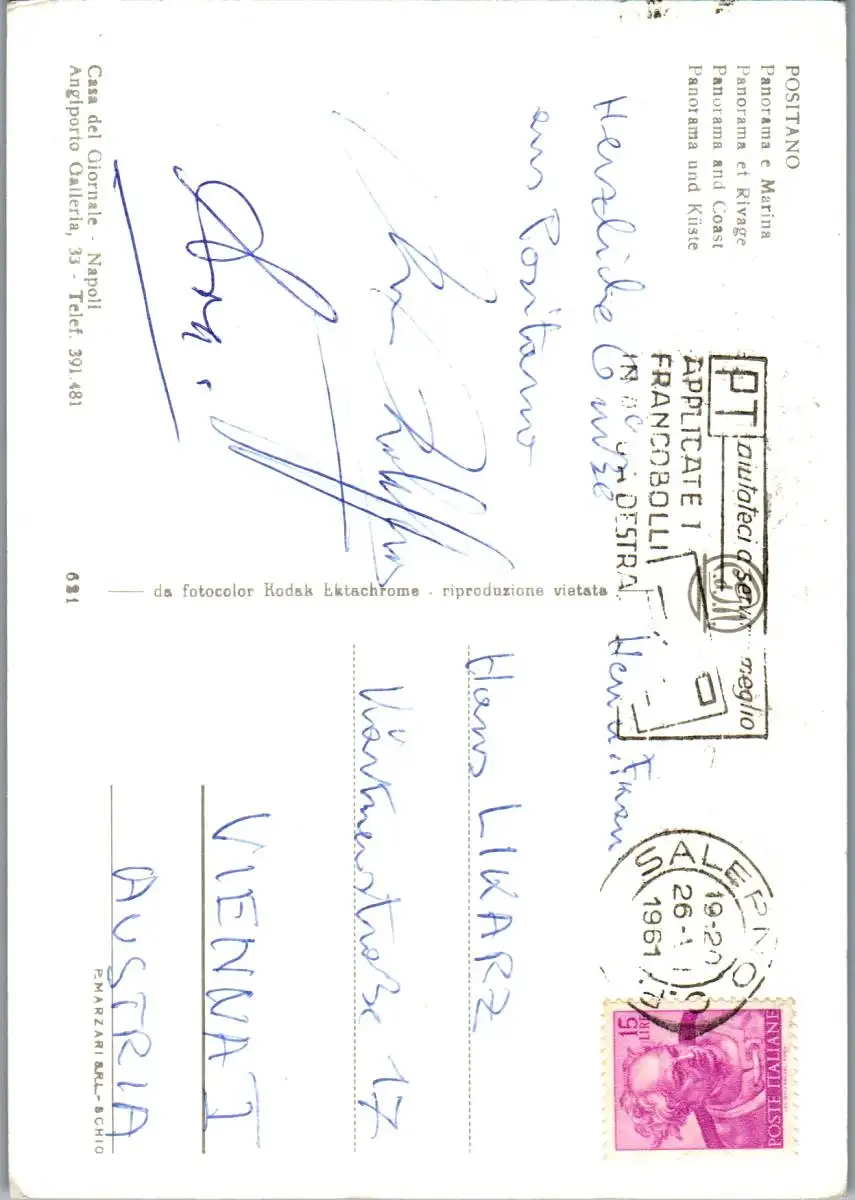 POSITANO
Panorama e Marina
Panorama et Rivage
Panorama and Coast
Panorama und Küste
Herzliche Grüße
aus Positano
Casa del Giornale - Napoli
Angiporto Galleria, 33 - Telef. 391.481
681
da fotocolor Kodak Ektachrome - riproduzione vietata
PT aiutateci a servirvi meglio
APPLICATE I
FRANCOBOLLI
IN DESTRA
SALERNO
19-20
26
1961
15
LIRE
POSTE ITALIANE
Hans LIKARZ
Kärtnerstraße 17
VIENNA I
AUSTRIA
P. MARZARI S.R.L. - SCHIO